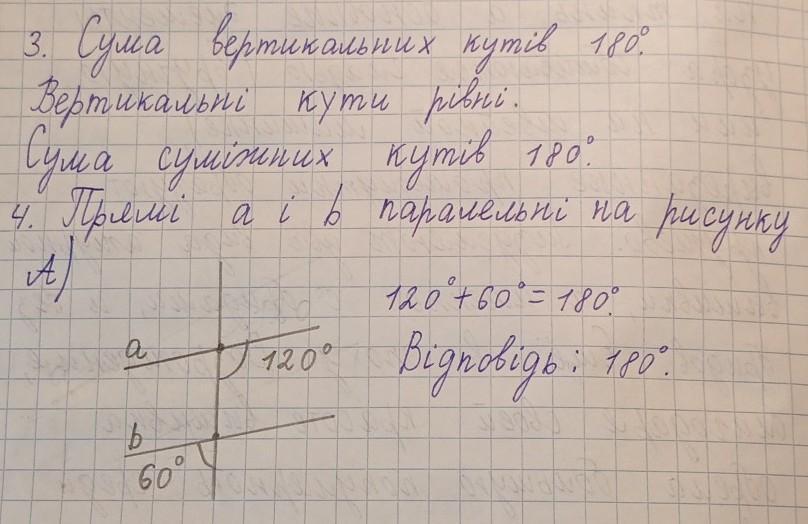 3. Сума вертикальних кутів 180°.
Вертикальні кути рівні.
Сума суміжних кутів 180°.
4. Прямі a і b паралельні на рисунку
А)
120° + 60° = 180°.
a
120°
Відповідь: 180°.
b
60°